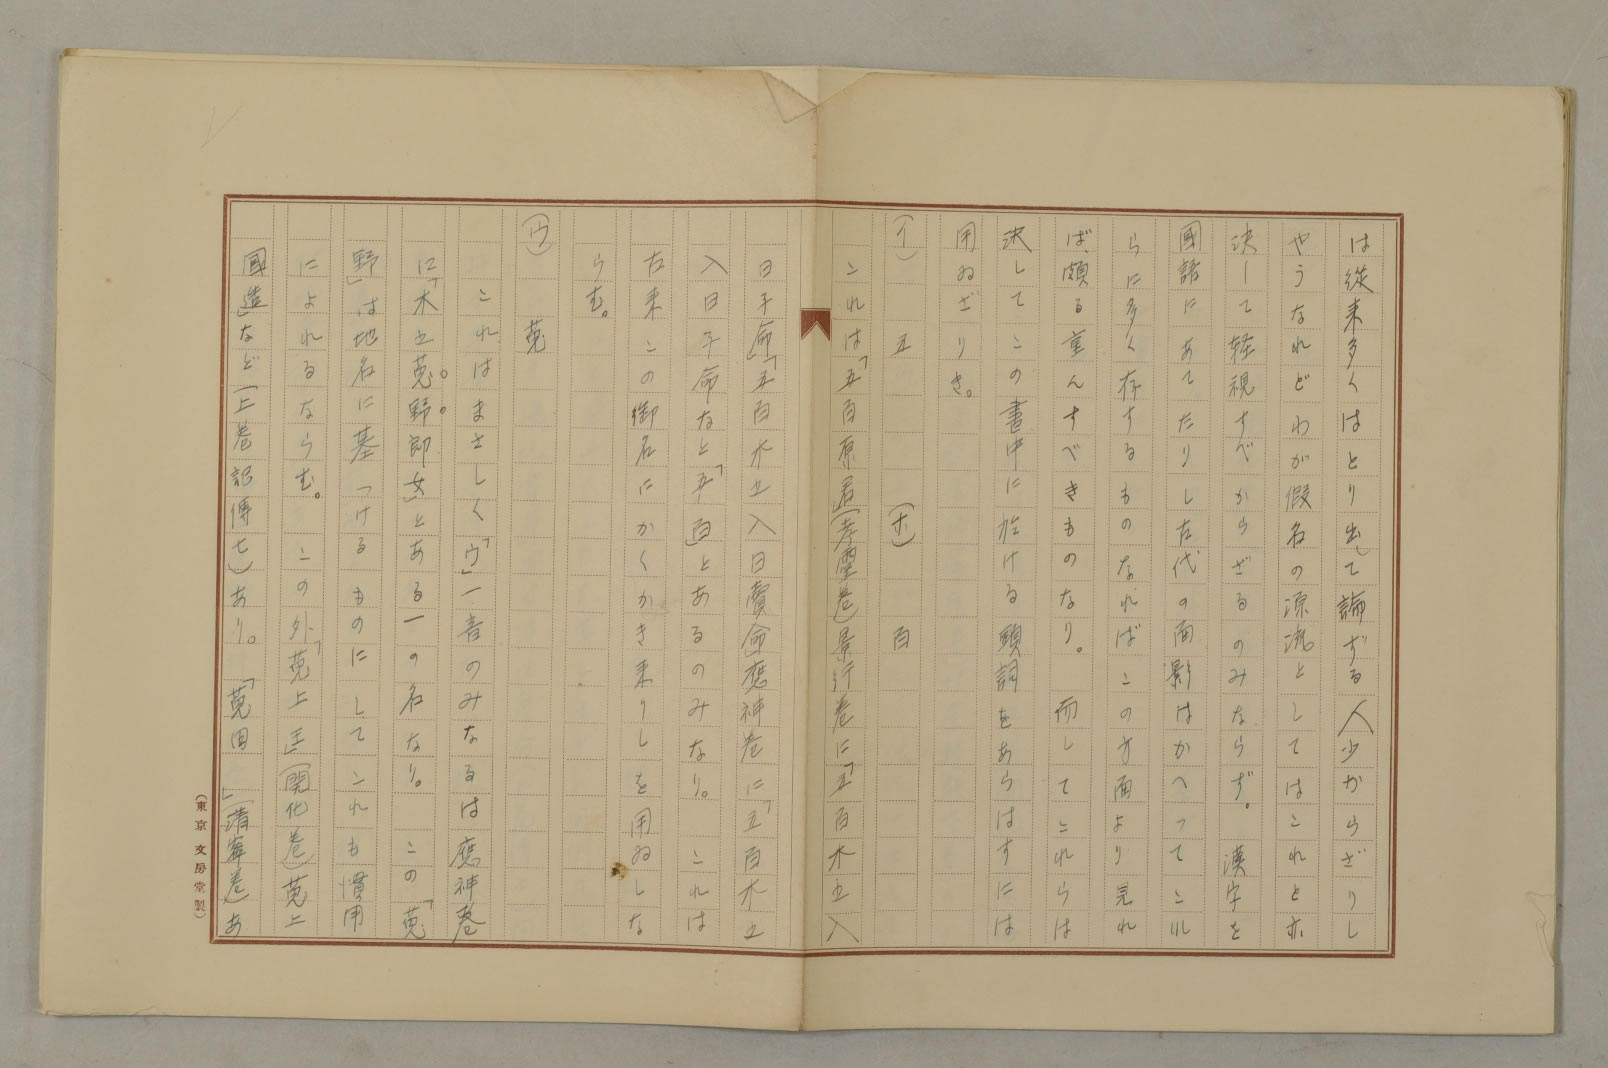 は從来多くはとり出して論ずる人少からざりし
やうなれどわが假名の源流としてはこれと亦
決して軽視すべからざるのみならず。漢字を
國語にあてたりし古代の面影はかへってこれ
らに多く存するものなればこの方面より見れ
ば頗る重んすべきものなり。而してこれらは
決してこの書中に於ける頭詞をあらはすには
用ゐざりき。
(イ) 五 (ホ) 百
これは「五百原君」(孝靈卷)景行卷に「五百木立入
日子命」「五百木立入日賣命」應神卷に「五百木立
入日子命なと「五百」とあるのみなり。これは
古来この御名にかくかき来りしを用ゐしな
らむ。
(ウ) 菟
これはまさしく「ウ」一音のみなるは應神卷
に「木立菟野郎女」とある一の名なり。この「菟
野」は地名に基つけるものにしてこれも慣用
によれるならむ。この外「菟上王」(開化卷)菟上
國造」など(上卷記傳七)あり。「菟田」(清寧卷)あ
(東京文房堂製)